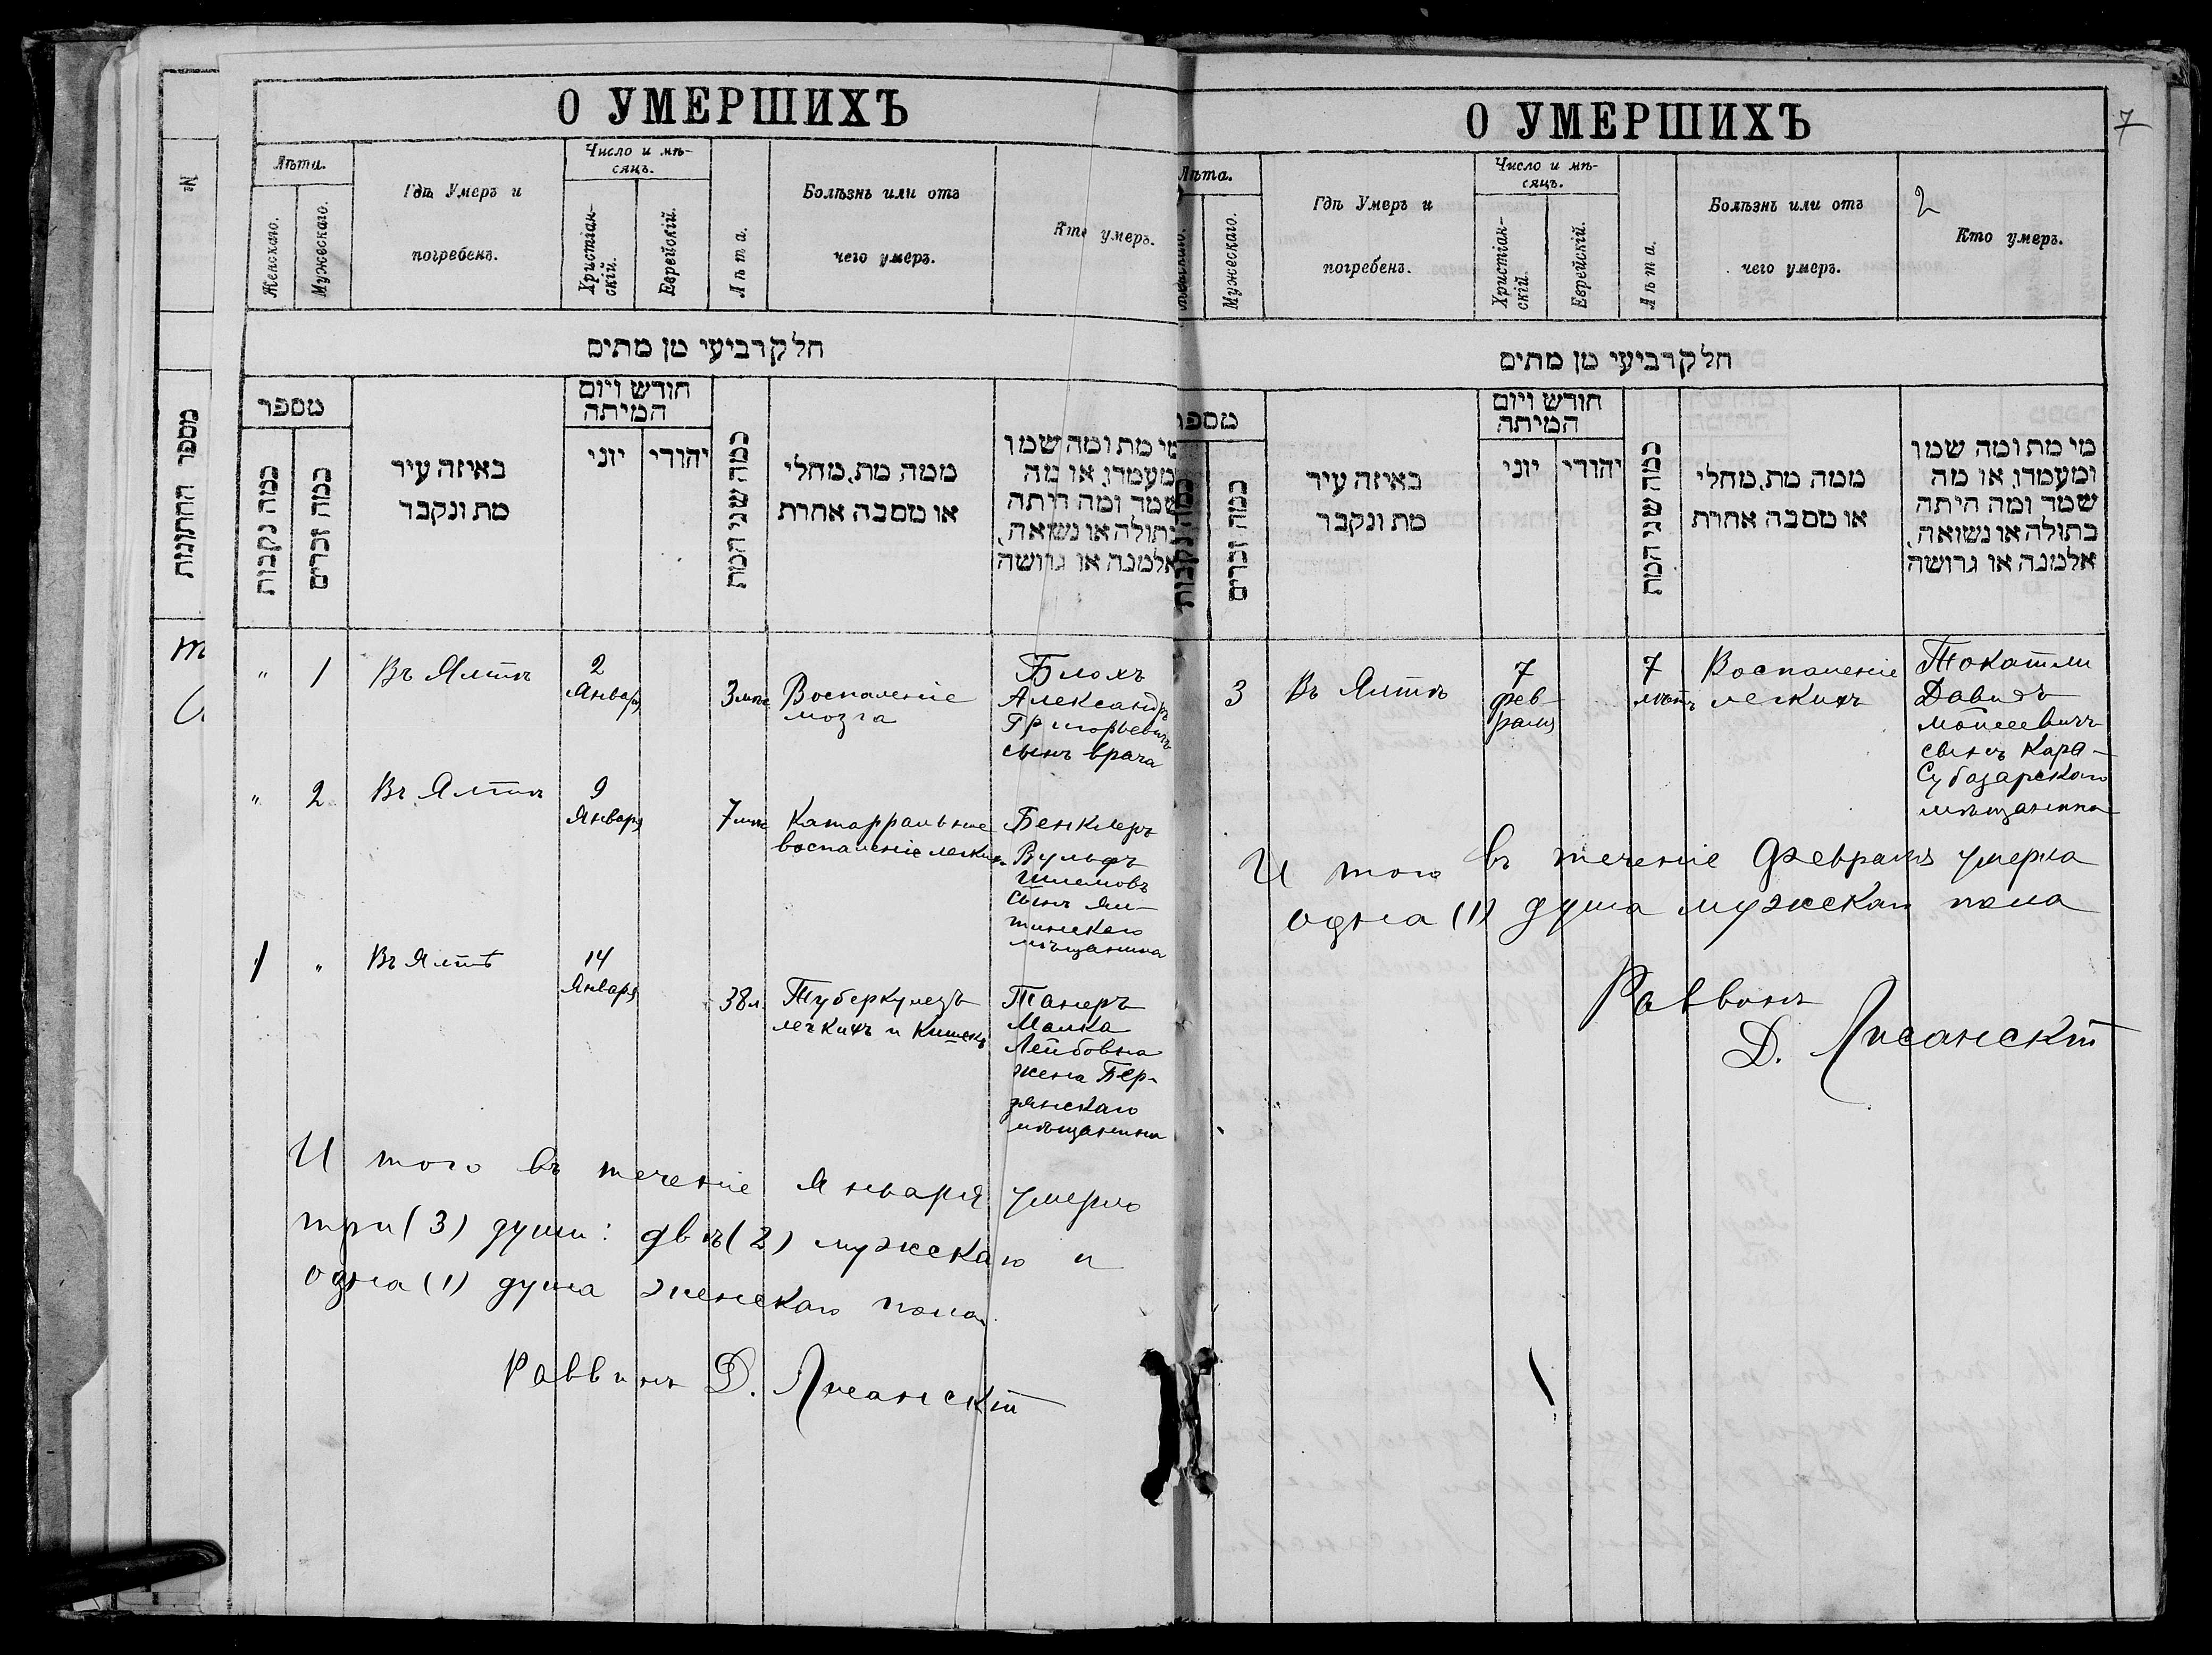 О УМЕРШИХЪ
Лѣта.
Женскаго.
Мужескаго.
Гдѣ Умеръ и
погребенъ.
Число и мѣ-
сяцъ.
Христіан-
скій.
Еврейскій.
Лѣта.
Болѣзнь или отъ
чего умеръ.
Кто умеръ.
חלק רביעי מן מתים
מספר
כמה נקבות
כמה זכרים
באיזה עיר
מת ונקבר
חודש ויום
המיתה
יוני
יהודי
כמה שני המת
ממה מת, מחלי
או מסבה אחרת
מי מת ומה שמו
ומעמדו, או מה
שמד ומה היתה
בתולה או נשואה,
אלמנה או גרושה
מספר החתונות
" 1 Въ Ялтѣ 2 Января 3 мѣс Воспаленіе мозга
Блохъ
Александръ
Григорьевичъ
сынъ врача
" 2 Въ Ялтѣ 9 Января 7 мѣс Катарральное воспаленіе легкихъ
Бенклеръ
Вульфъ
Шлемовъ
сынъ Ял-
тинскаго
мѣщанина
1 " Въ Ялтѣ 14 Января 38 л. Туберкулезъ легкихъ и Кишекъ
Танеръ
Малка
Лейбовна
жена Бер-
дянскаго
мѣщанина
И того въ теченіе Января умерло
три (3) души: двѣ (2) мужскаго и
одна (1) душа женскаго пола
Раввинъ Д. Лисанскій
7
О УМЕРШИХЪ
Лѣта.
Мужескаго.
Гдѣ Умеръ и
погребенъ.
Число и мѣ-
сяцъ.
Христіан-
скій.
Еврейскій.
Лѣта.
Болѣзнь или отъ
чего умеръ.
2
Кто умеръ.
חלק רביעי מן מתים
מספר
כמה נקבות
כמה זכרים
באיזה עיר
מת ונקבר
חודש ויום
המיתה
יוני
יהודי
כמה שני המת
ממה מת, מחלי
או מסבה אחרת
מי מת ומה שמו
ומעמדו, או מה
שמד ומה היתה
בתולה או נשואה,
אלמנה או גרושה
3 Въ Ялтѣ 7 фев-раля 7 лѣтъ Воспаленіе легкихъ
Токатли
Давидъ
Мойсеевичъ
сынъ Кара-
Субазарскаго
мѣщанина
И того въ теченіе Февраля умерла
одна (1) душа мужскаго пола
Раввинъ
Д. Лисанскій